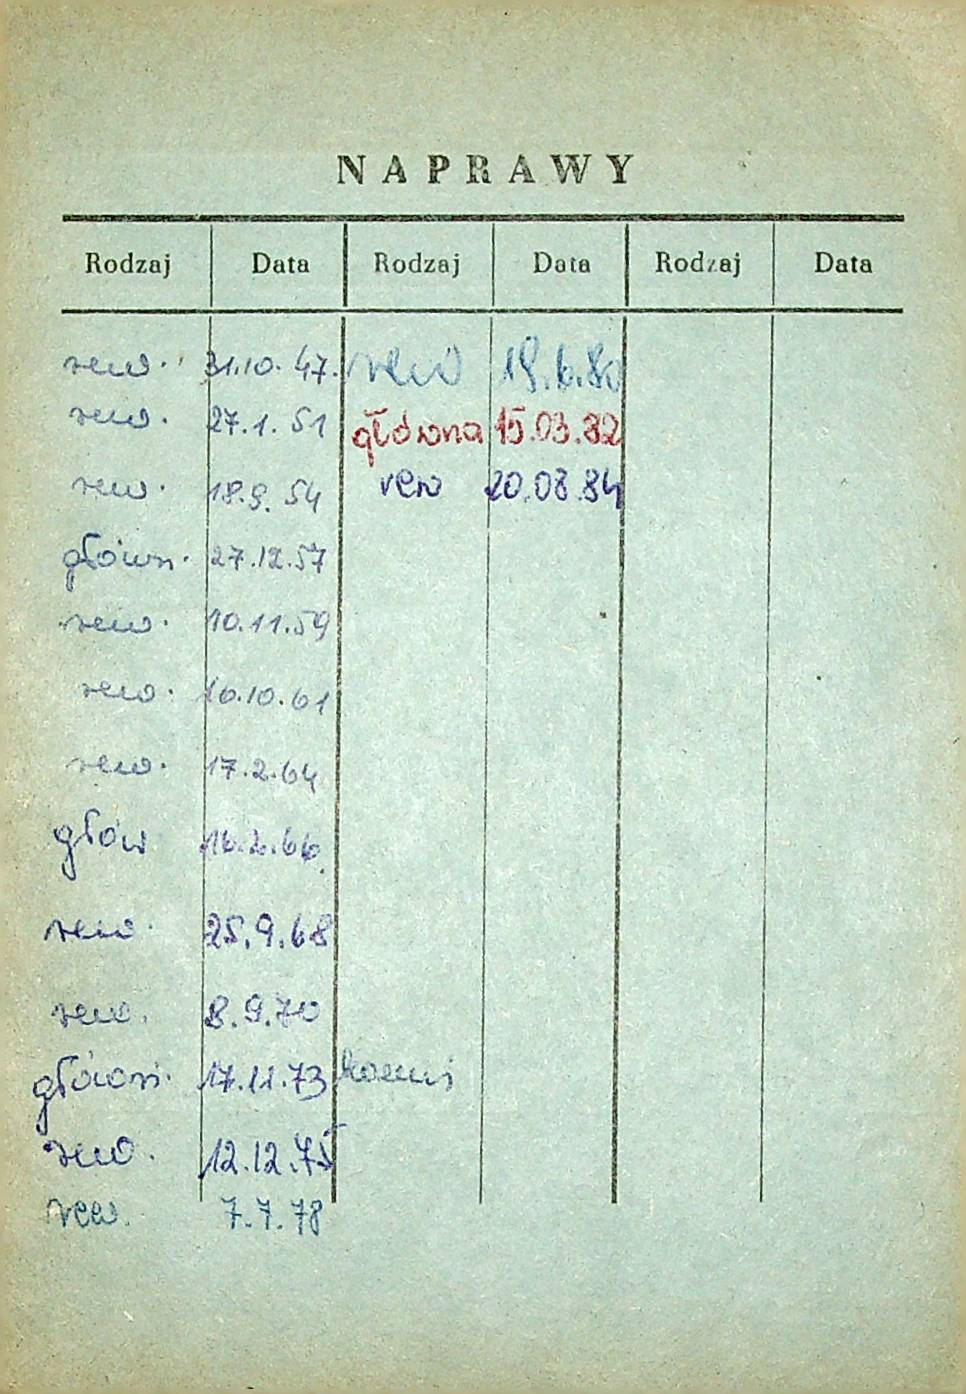 NAPRAWY
Rodzaj Data Rodzaj Data Rodzaj Data
rew. 31.10.47. rew 18.6.80
rew. 27.1.51 główna 15.03.82
rew. 18.9.54 rew 20.08.84
główn. 27.12.57
rew. 10.11.59
rew. 16.10.61
rew. 17.2.64
głów 16.2.66.
rew. 25.9.68
rew. 8.9.70
główn. 17.11.73
rew. 12.12.75
rew. 7.7.78